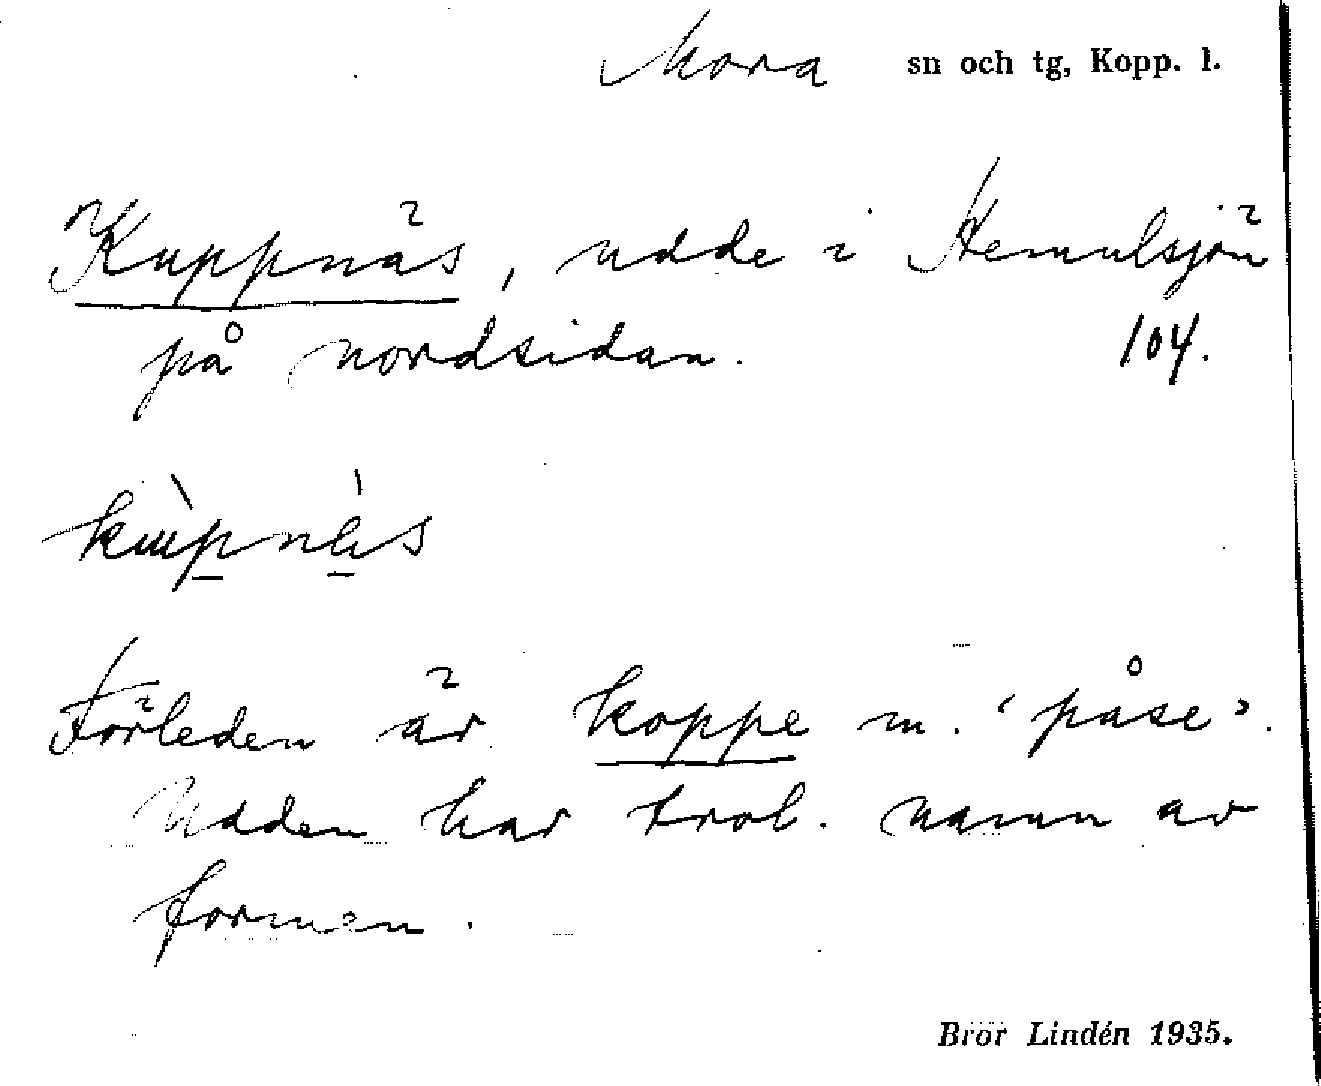 Mora sn och tg, Kopp. l.
Kuppnäs, udde i Hemulsjön
på nordsidan. 104.
Förleden är koppe m. ‘påse’.
Udden har trol. namn av
formen.
Bror Lindén 1935.